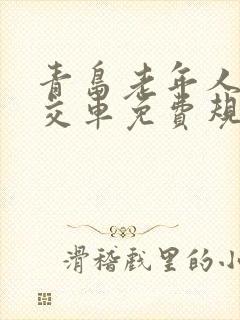 青岛老年人
交车免费规
滑稽戏里的小